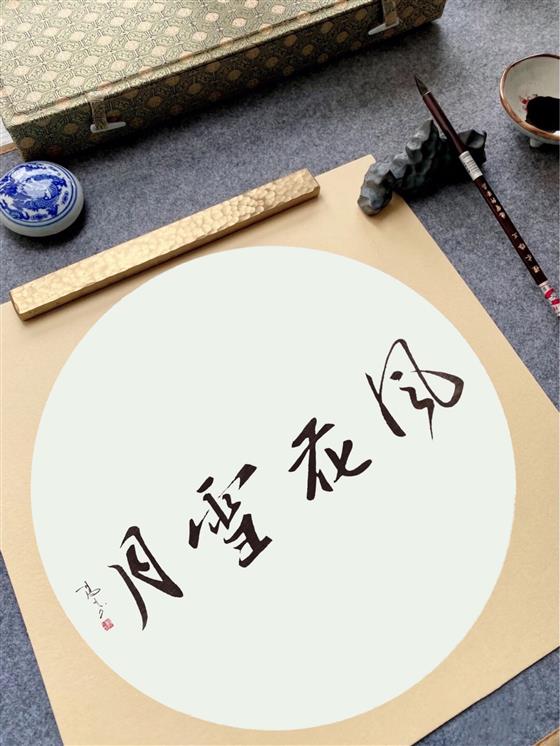 风花雪月